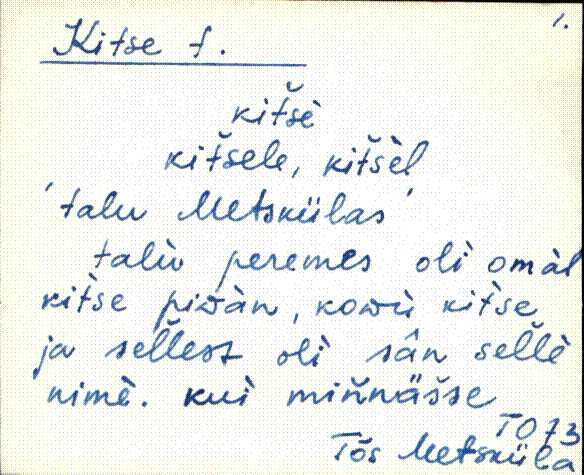 1.
Kitse t.
kitšè
kitšele, kitšèl
'talu Metskülas'
taliv peremes oli omàl
kitse piðàn, kowù kitse
ja sellest oli sân sellè
nimè. kui miňňäšse
TO 73
Tõs Metsküla